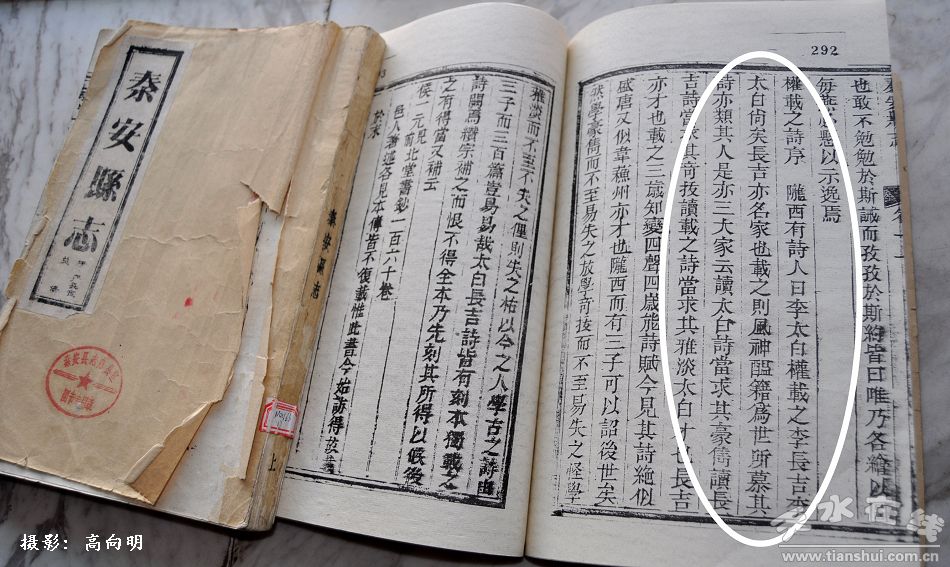 秦安縣志
上
秦安縣志
292
也敢不勉勉於斯誠而孜孜於斯縉皆曰唯乃各繪以
以示逸焉
權載之詩序 隴西有詩人曰李太白權載之李長吉
太白尚矣長吉亦名家也載之則風神醞籍為世所慕其
詩亦類其人是亦三大家云讀太白詩當求其豪儁讀長
吉詩當求其奇拔讀載之詩當求其雅淡太白才也長吉
亦才也載之三歲知變四聲四歲能詩賦今見其詩絶似
盛唐又似韋蘇州亦才也隴西而有三子可以詔後世矣
狀學豪儁而不至易失之放學奇拔而不至易失之怪學
雅淡而不至不失之俚則失之枯以今之人學古之詩由
三子而三百篇豈易易哉太白長吉詩皆有刻本獨載之
詩闕焉續宗補之而恨不得全本乃先刻其所得以俟後
之有得當又補云
侯一元 前北堂書鈔一百六十卷
邑人著述各見本傳皆不復載惟此書今始訪得
於末
摄影: 高向明
天水在线
www.tianshui.com.cn